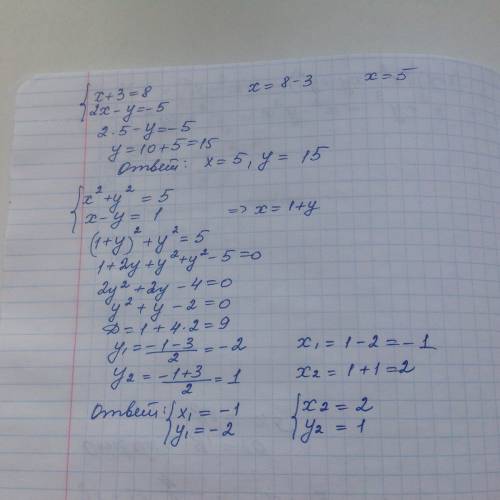 { x + 3 = 8    x = 8 - 3    x = 5
{ 2x - y = -5
2 · 5 - y = -5
y = 10 + 5 = 15
Ответ: x = 5, y = 15
{ x² + y² = 5
{ x - y = 1    => x = 1 + y
(1 + y)² + y² = 5
1 + 2y + y² + y² - 5 = 0
2y² + 2y - 4 = 0
y² + y - 2 = 0
D = 1 + 4 · 2 = 9
y₁ = (-1-3)/2 = -2    x₁ = 1 - 2 = -1
y₂ = (-1+3)/2 = 1    x₂ = 1 + 1 = 2
Ответ: { x₁ = -1    { x₂ = 2
{ y₁ = -2    { y₂ = 1